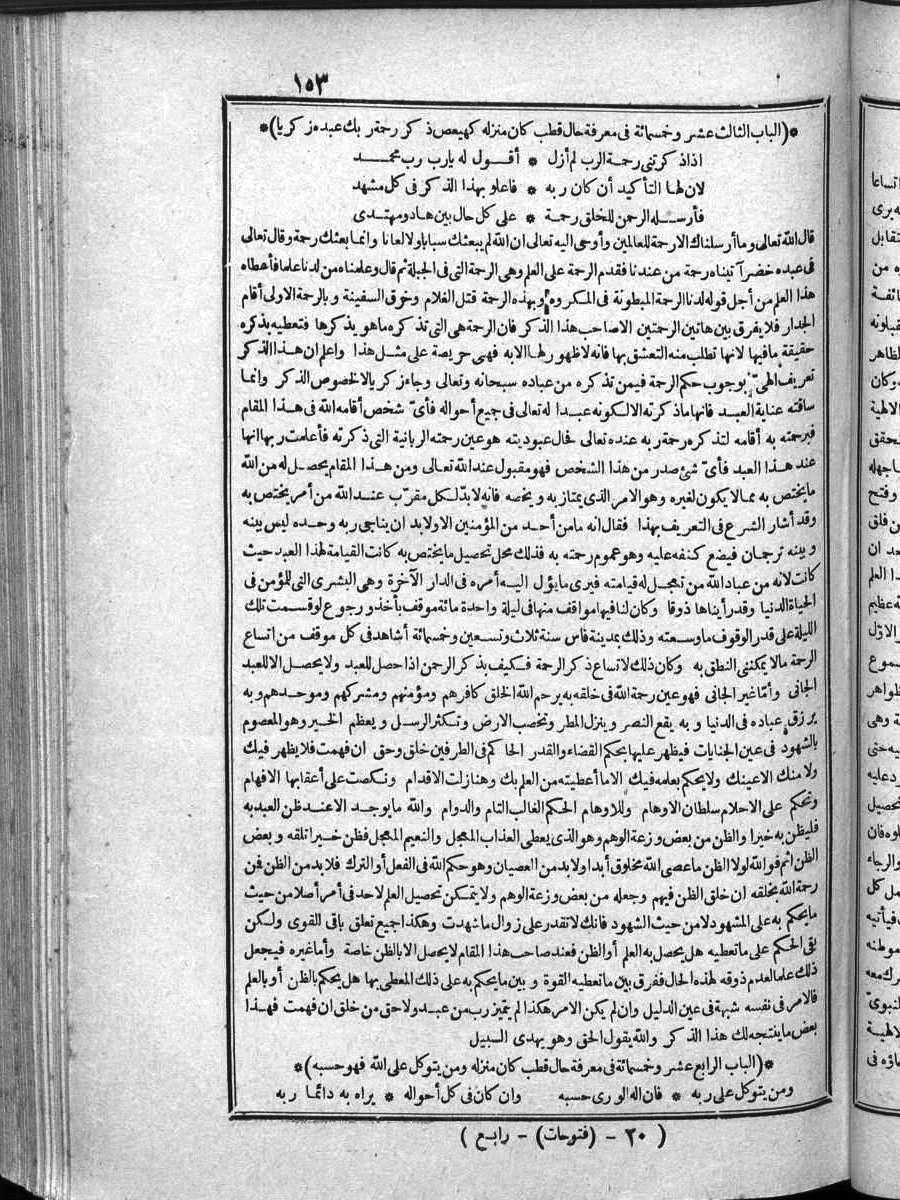 ١٥٣
*(الباب الثالث عشر وخمسمائة فى معرفة حال قطب كان منزله كهيعص ذكر رحمة ربك عبده زكريا)*
اذا ذكرتنى رحمة الرب لم أزل * أقول له يارب رب محمد
لان لها التأكيد أن كان ربه * فاعلو بهذا الذكر فى كل مشهد
فأرسله الرحمن للخلق رحمة * على كل حال بين هاد ومهتدى
قال الله تعالى وما أرسلناك الا رحمة للعالمين وأوحى اليه تعالى ان الله لم يبعثك سبابا ولا لعانا وانما بعثك رحمة وقال تعالى
فى عبده خضر آتيناه رحمة من عندنا فقدم الرحمة على العلم وهى الرحمة التى فى الجبلة ثم قال وعلمناه من لدنا علما فأعطاه
هذا العلم من أجل قوله لدنا الرحمة المبطونة فى المكروه وبهذه الرحمة قتل الغلام وخرق السفينة وبالرحمة الاولى أقام
الجدار فلا يفرق بين هاتين الرحمتين الا صاحب هذا الذكر فان الرحمة هى التى تذكره ما هو يذكرها فتعطيه بذكره
حقيقة ما فيها لانها تطلب منه التعشق بها فانه لا ظهور لها الا به فهى حريصة على مثل هذا واعلم ان هذا الذكر
تعريف الهىّ بوجوب حكم الرحمة فيمن تذكره من عباده سبحانه وتعالى وجاء زكريا لا لخصوص الذكر وانما
ساقته عناية العبد فانها ما ذكرته الا لكونه عبدا له تعالى فى جميع أحواله فأىّ شخص أقامه الله فى هذا المقام
فبرحمته به أقامه لتذكره رحمة ربه عنده تعالى فحال عبوديته هو عين رحمته الربانية التى ذكرته فأعلمت ربها انها
عند هذا العبد فأىّ شئ صدر من هذا الشخص فهو مقبول عند الله تعالى ومن هذا المقام يحصل له من الله
ما يختص به مما لا يكون لغيره وهو الامر الذى يمتاز به ويخصه فانه لا بدّ لكل مقرّب عند الله من أمر يختص به
وقد أشار الشرع فى التعريف بهذا فقال انه ما من أحد من المؤمنين الا ولا بد ان يناجى ربه وحده ليس بينه
وبينه ترجمان فيضع كنفه عليه وهو عموم رحمته به فذلك محل تحصيل ما يختص به كانت القيامة لهذا العبد حيث
كانت لانه من عباد الله من تعجل له قيامته فيرى ما يؤل اليه أمره فى الدار الآخرة وهى البشرى التى للمؤمن فى
الحياة الدنيا وقد رأيناها ذوقا وكان لنا فيها مواقف منها فى ليلة واحدة مائة موقف بأخذ ورجوع لو قسمت تلك
الليلة على قدر الوقوف ما وسعته وذلك بمدينة فاس سنة ثلاث وتسعين وخمسمائة أشاهد فى كل موقف من اتساع
الرحمة ما لا يمكننى النطق به وكان ذلك لاتساع ذكر الرحمة فكيف بذكر الرحمن اذا حصل للعبد ولا يحصل الا للعبد
الجانى وأمّا غير الجانى فهو عين رحمة الله فى خلقه به يرحم الله الخلق كافرهم ومؤمنهم ومشركهم وموحدهم وبه
يرزق عباده فى الدنيا وبه يقع النصر وينزل المطر وتخصب الارض وتكثر الرسل ويعظم الخير وهو المعصوم
بالشهود فى عين الجنايات فيظهر عليها بحكم القضاء والقدر الحاكم فى الطرفين خلق وحق ان فهمت فلا يظهر فيك
ولا منك الا عينك ولا يحكم بعلمه فيك الا ما أعطيته من العلم بك وهنا زلت الاقدام ونكصت على أعقابها الافهام
وتحكم على الاحلام سلطان الاوهام وللاوهام الحكم الغالب التام والدوام والله ما يوجد الا عند ظن العبد به
فليظن به خيرا والظن من بعض وزعة الوهم وهو الذى يعطى العذاب المعجل والنعيم المعجل فظن خيرا تلقه وبعض
الظن اثم فو الله لولا الظن ما عصى الله مخلوق أبدا ولا بد من العصيان وهو حكم الله فى الفعل أو الترك فلا بد من الظن فمن
رحمة الله بخلقه ان خلق الظن فيهم وجعله من بعض وزعة الوهم ولا يتمكن تحصيل العلم لاحد فى أمر أصلا من حيث
ما يحكم به على المشهود لا من حيث الشهود فانك لا تقدر على زوال ما شهدت وهكذا جميع تعلق باقى القوى ولكن
بقى الحكم على ما تعطيه هل يحصل به العلم أو الظن فعند صاحب هذا المقام لا يحصل الا بالظن خاصة وأما غيره فيجعل
ذلك علما لعدم ذوقه لهذه الحال ففرق بين ما تعطيه القوة وبين ما يحكم به على ذلك المعطى بها هل يحكم بالظن أو بالعلم
فالامر فى نفسه شبهة فى عين الدليل وان لم يكن الامر هكذا لم يتميز رب من عبد ولا حق من خلق ان فهمت فهذا
بعض ما ينتجه لك هذا الذكر والله يقول الحق وهو يهدى السبيل
*(الباب الرابع عشر وخمسمائة فى معرفة حال قطب كان منزله ومن يتوكل على الله فهو حسبه)*
ومن يتوكل على ربه * فان اله الورى حسبه وان كان فى كل أحواله * يراه به دائما ربه
(٢٠ - (فتوحات) - رابع)